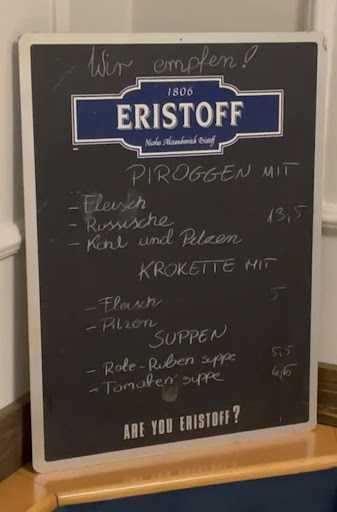 Wir empfen!
1806
ERISTOFF
Nicolai Alexandrovitch Eristoff
PIROGGEN MIT
- Fleisch
- Russische 13,5
- Kohl und Pilzen
KROKETTE MIT
- Fleisch 5
- Pilzen
SUPPEN
- Rote-Ruben suppe 5,5
- Tomaten suppe 4,5
ARE YOU ERISTOFF?